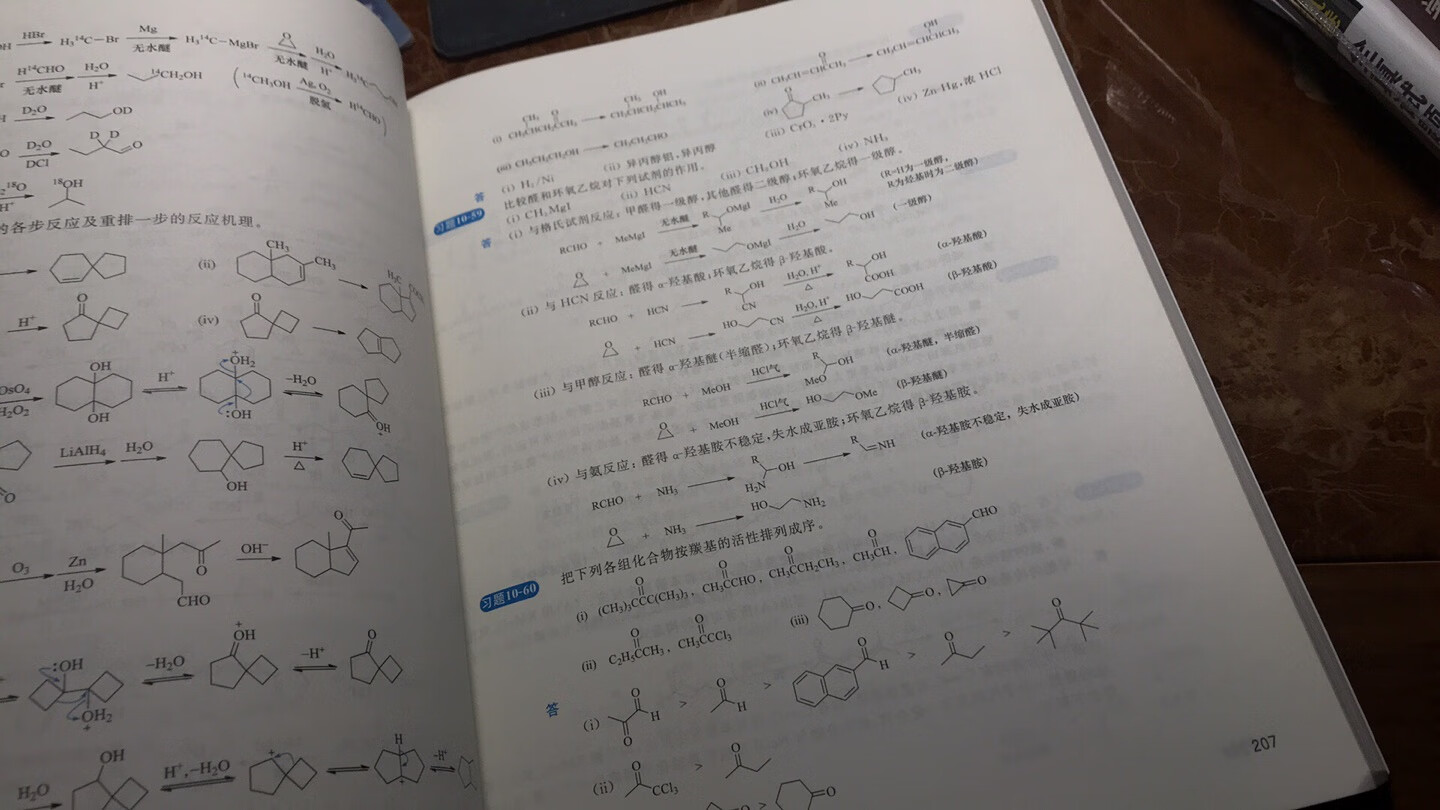 HBr Mg H₂O
H₃¹⁴C—Br H₃¹⁴C—MgBr
无水醚 无水醚 H⁺
H¹⁴CHO H₂O ¹⁴CH₂OH (¹⁴CH₃OH Ag,O₂ H¹⁴CHO)
无水醚 H⁺ 脱氢
D₂O OD
D₂O D D O
DCl
¹⁸OH
H⁺
的各步反应及重排一步的反应机理。
(ii) CH₃ CH₃
H⁺ O (iv) O
OsO₄ OH H⁺ OH₂ −H₂O
H₂O₂ OH :OH OH
LiAlH₄ H₂O H⁺
OH △
O₃ Zn O OH⁻ O
H₂O CHO
:OH −H₂O OH −H⁺ O
OH₂
H₂O OH H⁺,−H₂O H −H⁺
(i) CH₃CHCH₂CCH₃ CH₃CHCH₂CHCH₃ (ii) CH₃CH=CHCCH₃ CH₃CH=CHCHCH₃
(iii) CH₃CH₂CH₂OH CH₃CH₂CHO (iv) CH₃ CH₃
答 (i) H₂/Ni (ii) 异丙醇铝,异丙醇 (iii) CrO₃·2Py (iv) Zn-Hg,浓 HCl
习题10-59 比较醛和环氧乙烷对下列试剂的作用。
(i) CH₃MgI (ii) HCN (iii) CH₃OH (iv) NH₃
答 (i) 与格氏试剂反应:甲醛得一级醇,其他醛得二级醇;环氧乙烷得一级醇。
RCHO + MeMgI 无水醚 R OMgI Me H₂O R OH Me (R=H为一级醇,R为烃基时为二级醇)
O + MeMgI 无水醚 OMgI H₂O OH (一级醇)
(ii) 与 HCN 反应:醛得 α-羟基酸;环氧乙烷得 β-羟基酸。
RCHO + HCN R OH CN H₂O, H⁺ △ R OH COOH (α-羟基酸)
O + HCN HO CN H₂O, H⁺ △ HO COOH (β-羟基酸)
(iii) 与甲醇反应:醛得 α-羟基醚(半缩醛);环氧乙烷得 β-羟基醚。
RCHO + MeOH HCl气 R OH MeO (α-羟基醚,半缩醛)
O + MeOH HCl气 HO OMe (β-羟基醚)
(iv) 与氨反应:醛得 α-羟基胺不稳定,失水成亚胺;环氧乙烷得 β-羟基胺。
RCHO + NH₃ R OH H₂N R NH (α-羟基胺不稳定,失水成亚胺)
O + NH₃ HO NH₂ (β-羟基胺)
习题10-60 把下列各组化合物按羰基的活性排列成序。
(i) (CH₃)₃CCC(CH₃)₃, CH₃CCHO, CH₃CCH₂CH₃, CH₃CH, CHO
(ii) C₂H₅CCH₃, CH₃CCCl₃ (iii) O, O, O
答 (i) O H O > O H > O H > O > O
(ii) O CCl₃ > O
O > O
207